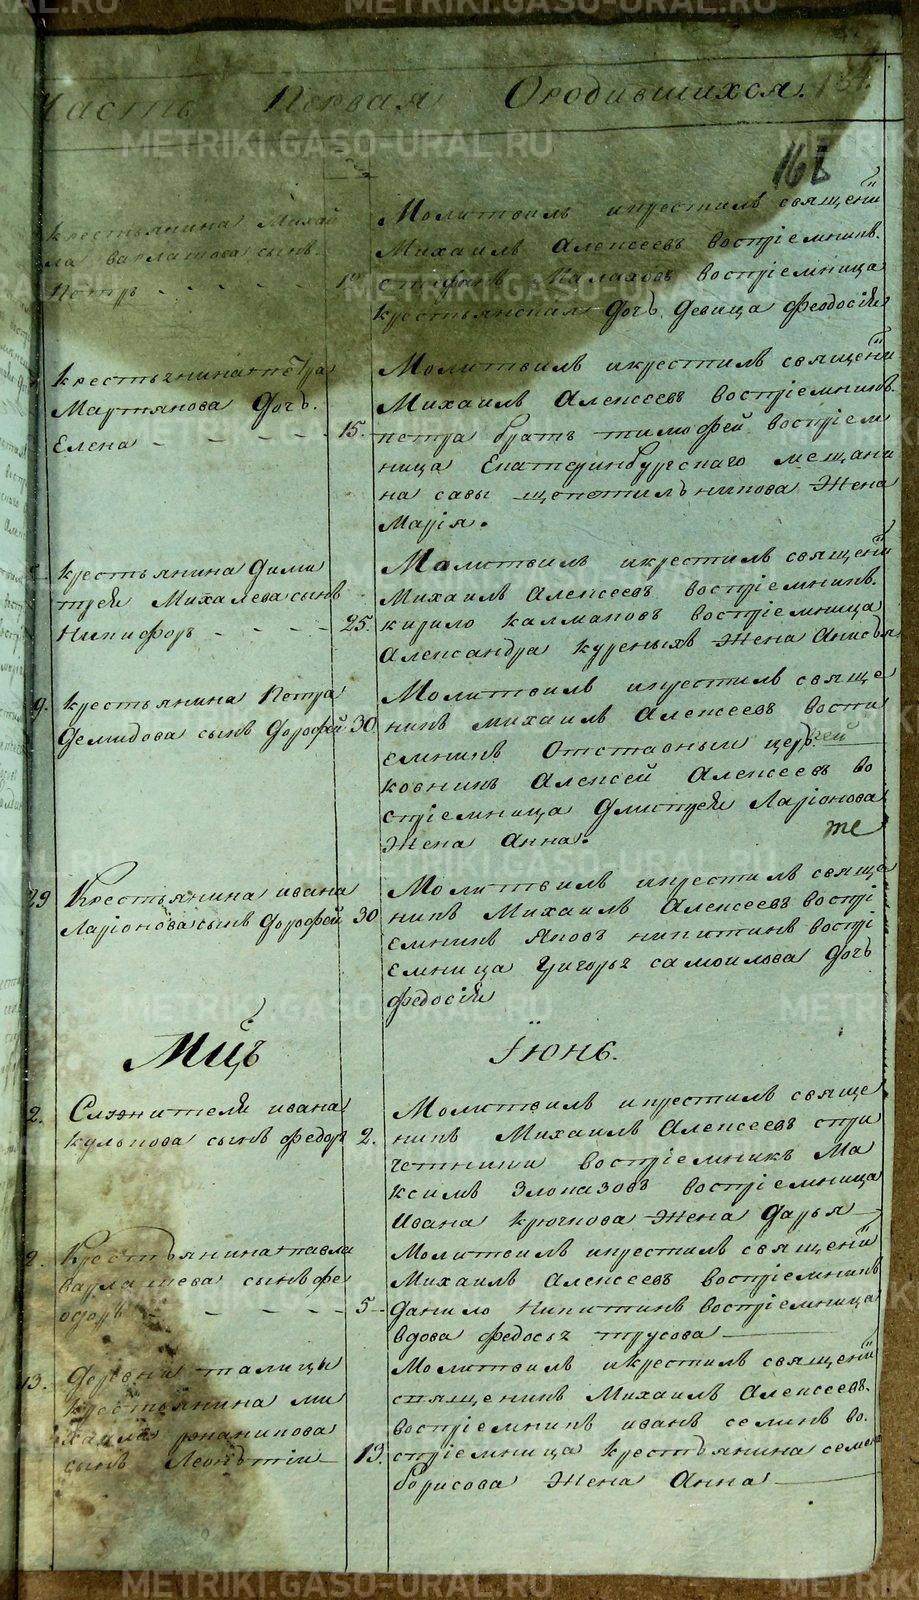 Часть Первая О родившихся. 134.
168
крестьянина Михай
ла варлатова сынъ
Петръ
Молитвилъ икрестилъ священи
Михаилъ Алексеевъ воспріемникъ
стефанъ Калаховъ воспріемница
крестьянская дочь девица Феодосія
крестьянина петра
Мартянова дочь
Елена 15.
Молитвилъ икрестилъ священи
Михаилъ Алексеевъ воспріемникъ
петра братъ тимофей воспріем
ница Екатеринбургскаго мещани
на савы щепетильникова жена
Марія.
крестьянина дими
трея Михалева сынъ
Никифоръ 25.
Молитвилъ икрестилъ священи
Михаилъ Алексеевъ воспріемникъ
кирило калмаковъ воспріемница
Александра куреныхъ жена Анисья
9. крестьянина Петра
Демидова сынъ Дорофей 30
Молитвилъ икрестилъ свяще
никъ михаилъ Алексеевъ воспи
емникъ отставный цер
ковникъ Алексей Алексеевъ во
спріемница Дмитрея Ларіонова
жена Анна.
те
29 Крестьянина ивана
Ларіонова сынъ Дорофей 30
Молитвилъ икрестилъ свяще
никъ Михаилъ Алексеевъ воспрі
емникъ Яковъ никитинъ воспрі
емница григорья самоилова дочь
федосія
Мцъ Іюнь.
2. Служителя ивана
кулькова сынъ федоръ 2.
Молитвилъ икрестилъ свяще
никъ Михаилъ Алексеевъ спри
четники воспріемникъ Ма
ксимъ Злоказовъ воспріемница
ивана крючкова жена дарья
2. Крестьянина павла
варламева сынъ фе
одоръ 5
Молитвилъ икрестилъ священи
Михаилъ Алексеевъ воспріемникъ
данило Никитинъ воспріемница
вдова федосья трусова
13. Деревни талицы
крестьянина ми
хаила
сынъ Леонътіи 13.
Молитвилъ икрестилъ священи
священикъ Михаилъ Алексеевъ
воспріемникъ иванъ семинъ во
спріемница крестьянина семена
борисова жена Анна
METRIKI.GASO-URAL.RU